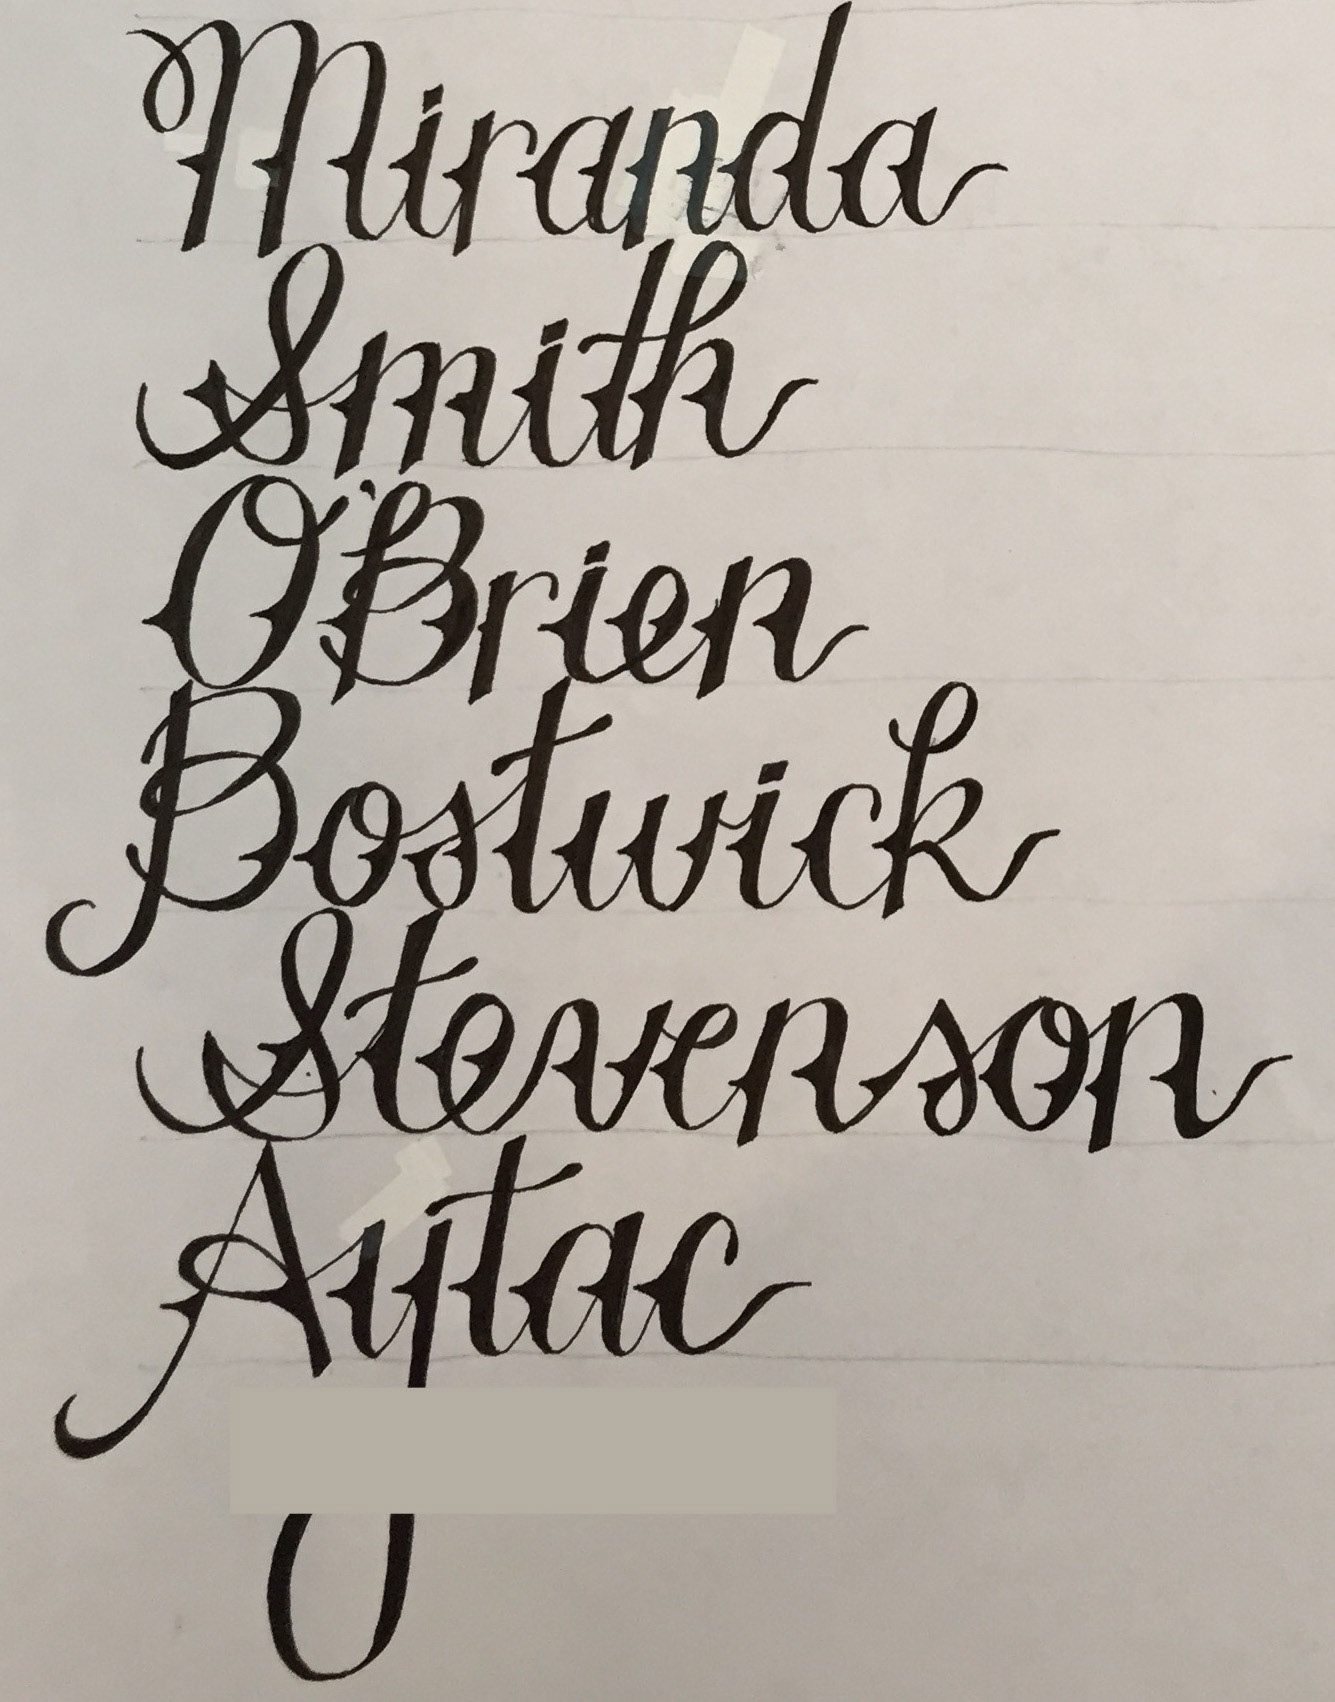 Miranda
Smith
O'Brien
Bostwick
Stevenson
Aytac